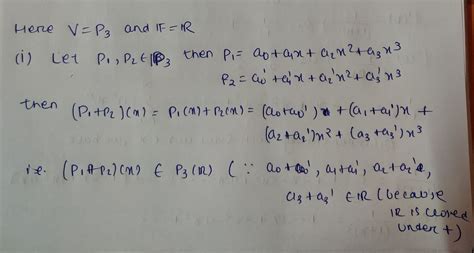 Here V = P₃ and IF = IR
(i) Let P₁, P₂ ∈ P₃ then P₁ = a₀ + a₁x + a₂x² + a₃x³
P₂ = a₀' + a₁'x + a₂'x² + a₃'x³
then (P₁+P₂)(x) = P₁(x) + P₂(x) = (a₀+a₀') + (a₁+a₁')x +
(a₂+a₂')x² + (a₃+a₃')x³
i.e. (P₁+P₂)(x) ∈ P₃(IR) (∵ a₀+a₀', a₁+a₁', a₂+a₂',
a₃+a₃' ∈ IR (because
IR is closed
under +)